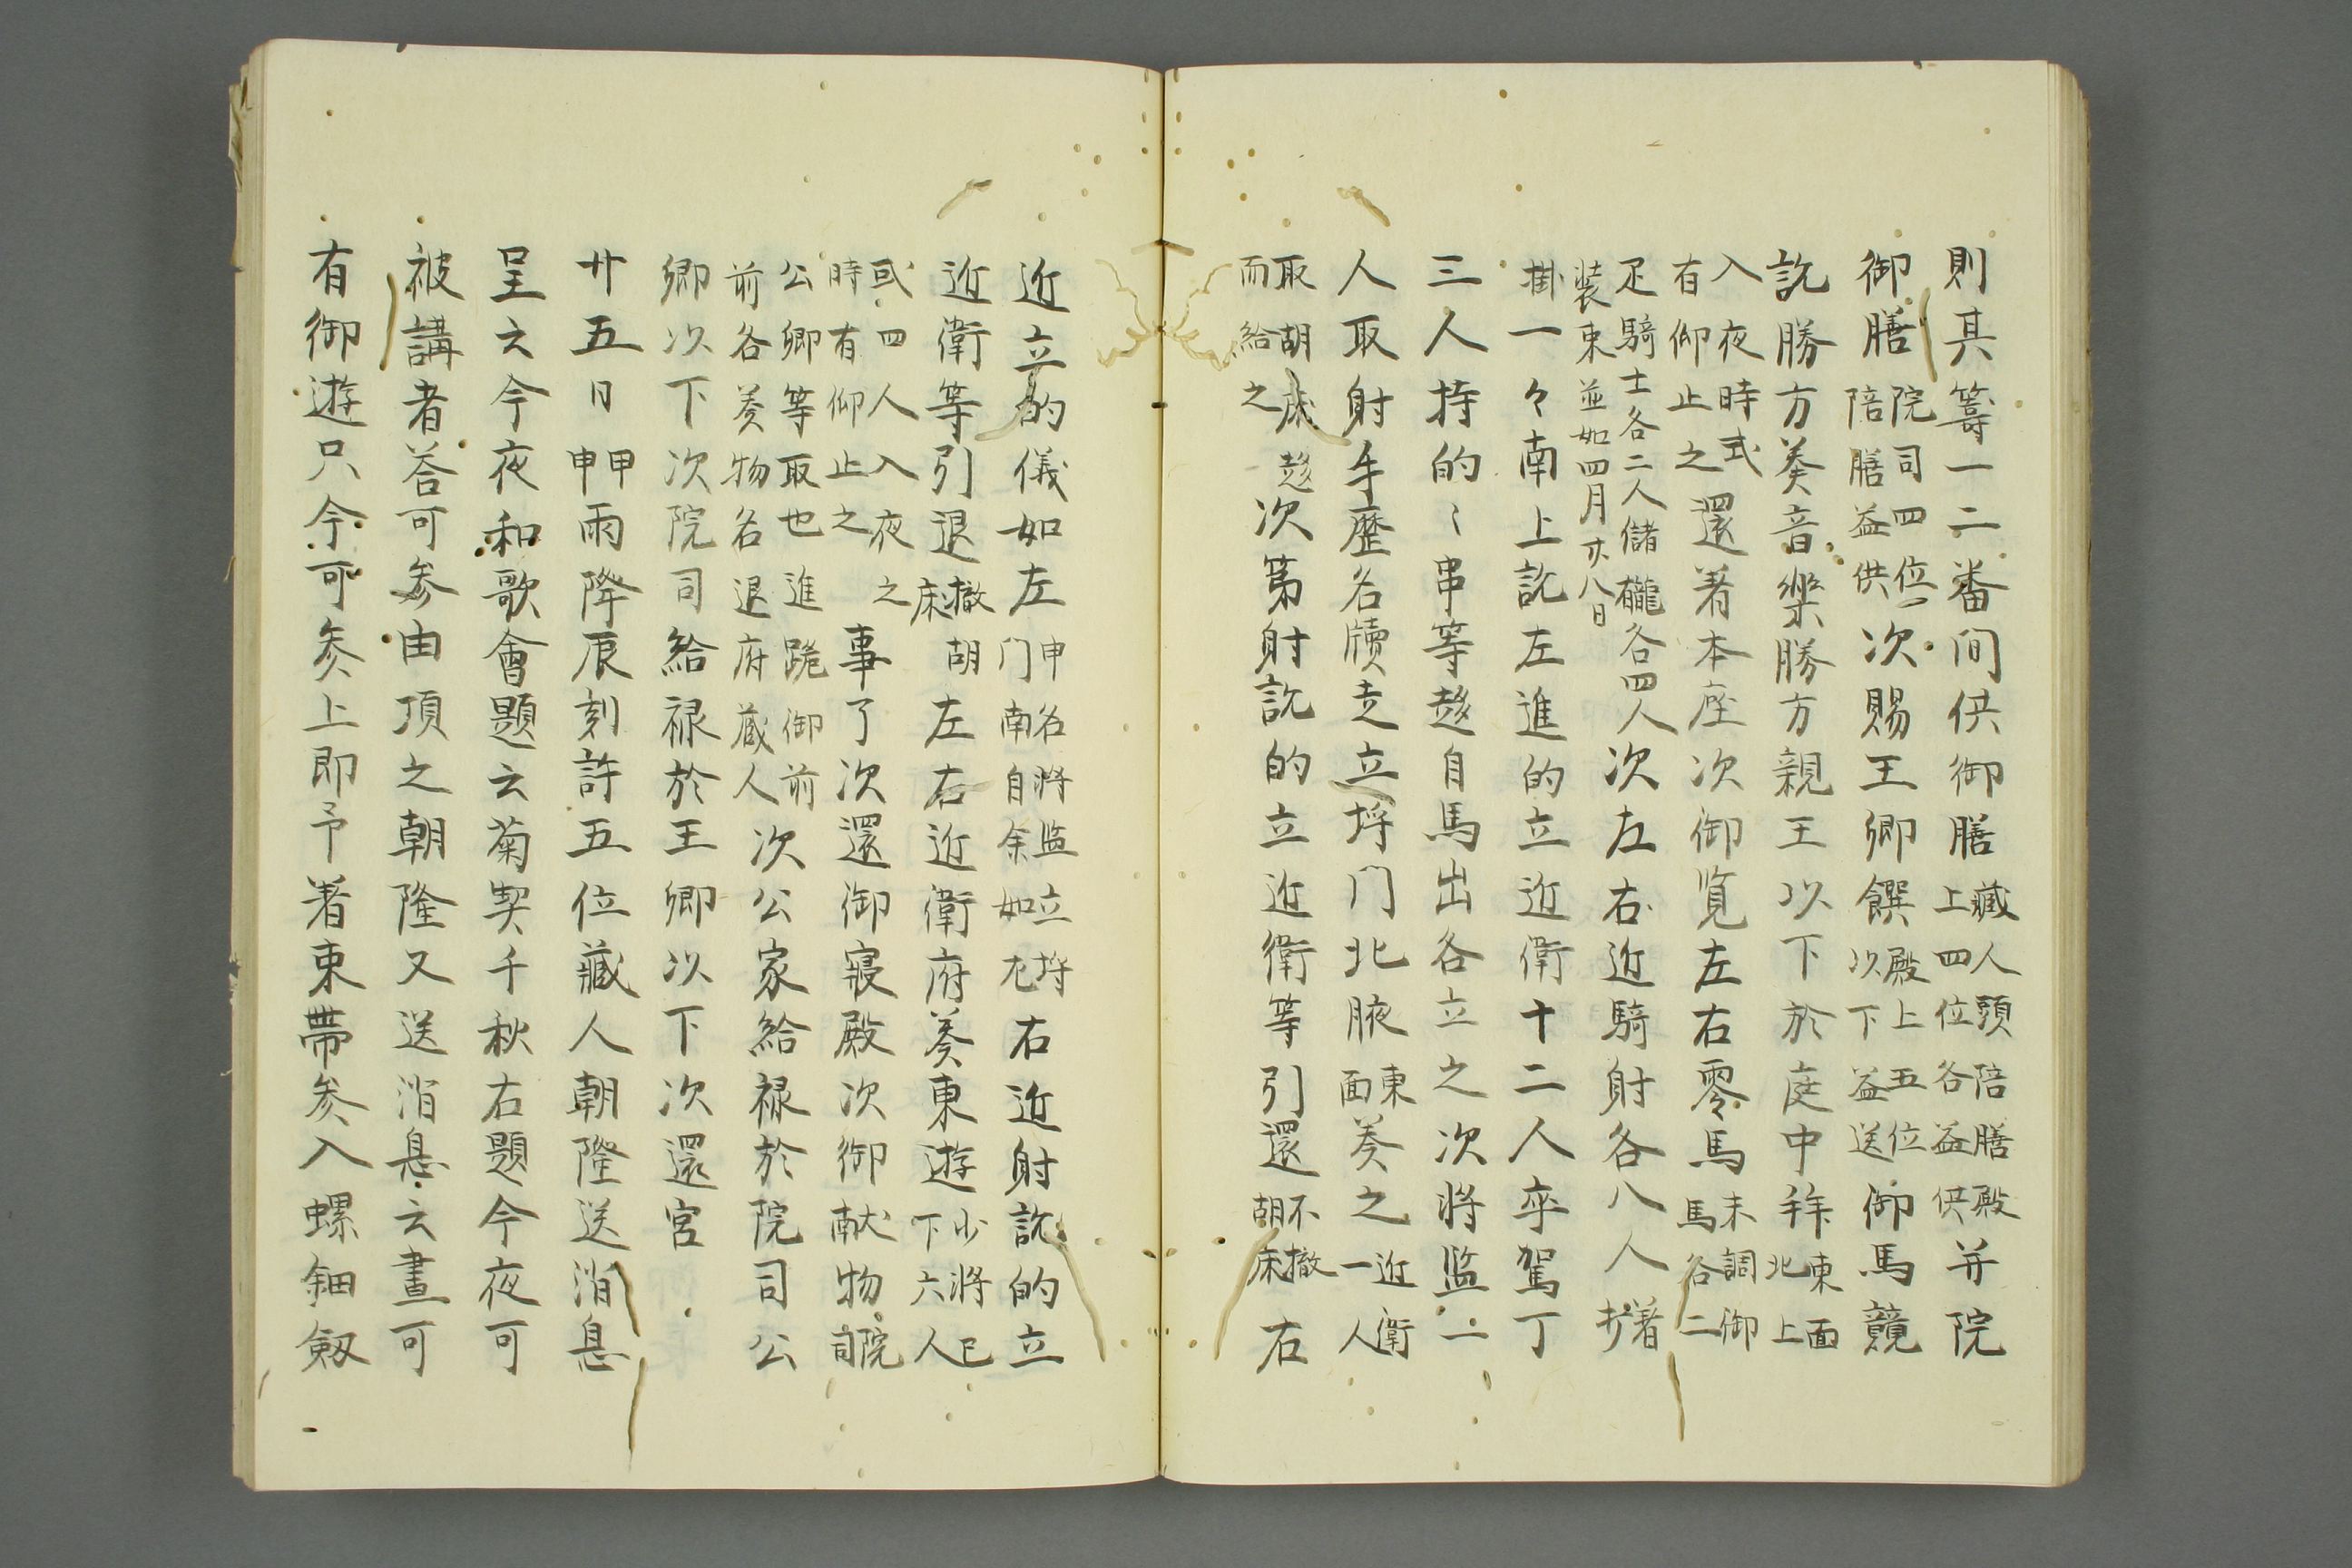 則其籌一二番间供御膳藏人頭陪膳殿上四位各益供并院
御膳院司四位陪膳益供次賜王卿饌殿上五位以下益送御馬競
訖勝方奏音樂勝方親王以下於庭中拜東面北上
入夜時或有仰止之還着本座次御覧左右零馬未調御馬各二
疋騎士各二人儲櫳各四人装束並如四月廿八日次左右近騎射各八人著
掛一々南上訖左進的立近衛十二人率駕丁
三人持的〻串等趍自馬出各立之次將监一
人取射手歴名牘走立埒门北腋東面奏之近衛一人
取胡床趍而給之次第射訖的立近衛等引還不撤胡床右
近立的儀如左申名將监立埒门南自余如左右近射訖的立
近衛等引退撤胡床左右近衛府奏東遊少將已下六人
或四人入夜之時有仰止之事了次還御寢殿次御献物院司
公卿等取也進跪御前前各奏物名退府蔵人次公家給禄於院司公
卿以下次院司給禄於王卿以下次還宮
廿五日甲申雨降辰刻許五位藏人朝隆送消息
呈云今夜和歌會題云菊契千秋右題今夜可
被講者答可参由頃之朝隆又送消息云晝可
有御遊只今可参上即予著束帶参入螺鈿劔